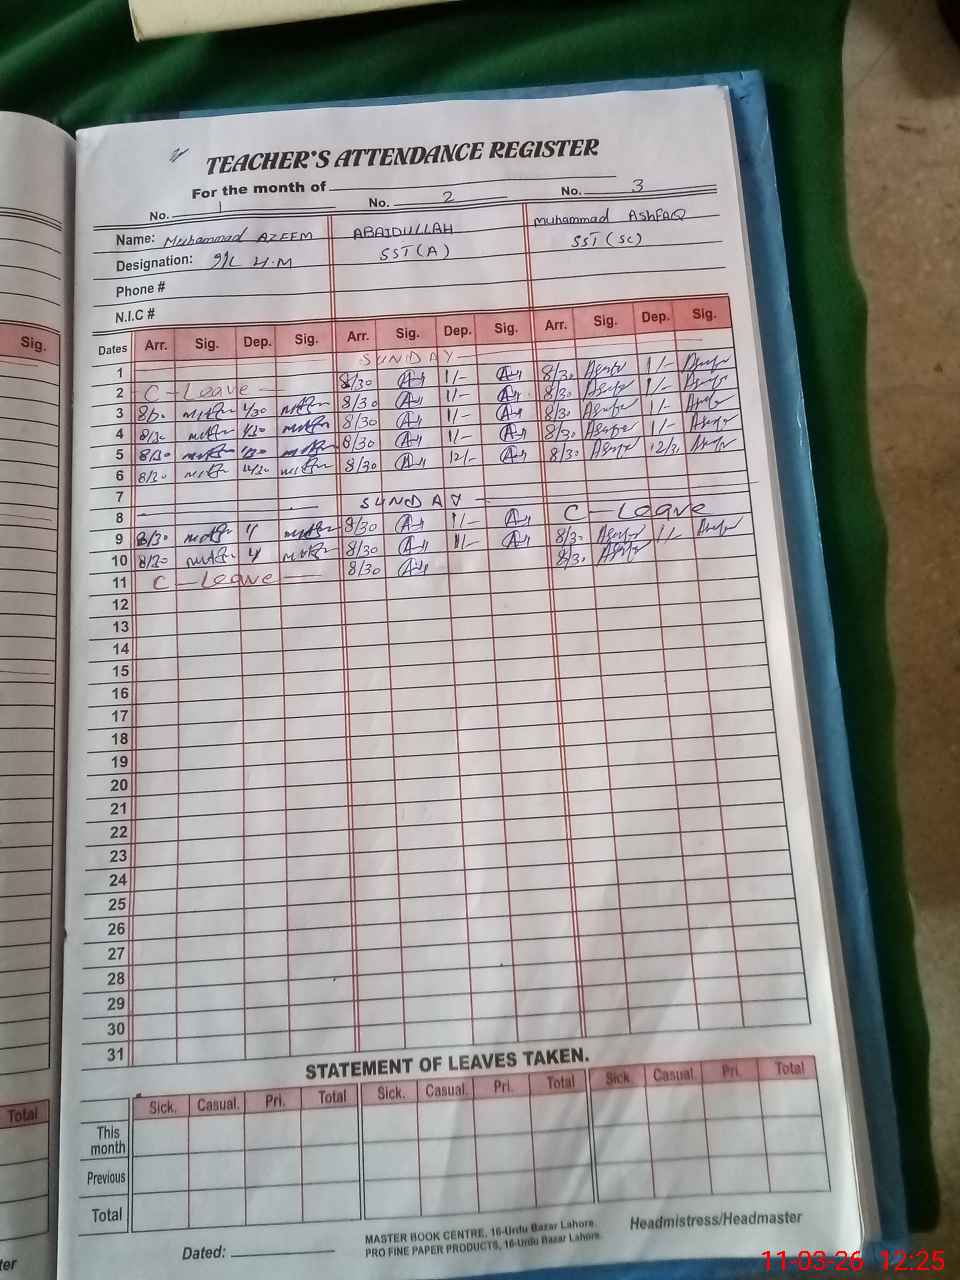 TEACHER'S ATTENDANCE REGISTER
For the month of
No. 1 No. 2 No. 3
Name: Muhammad AZEEM ABAIDULLAH muhammad ASHFAQ
Designation: I/C H.M SST (A) SST (SC)
Phone #
N.I.C #
Sig. Dates Arr. Sig. Dep. Sig. Arr. Sig. Dep. Sig. Arr. Sig. Dep. Sig.
1 SUNDAY
2 C-Leave 8/30 1/- 8/30 1/-
3 8/30 1/30 8/30 1/- 8/30 1/-
4 8/30 1/30 8/30 1/- 8/30 1/-
5 8/30 1/30 8/30 1/- 8/30 1/-
6 8/30 12/30 8/30 12/- 8/30 12/30
7
8 SUNDAY C-Leave
9 8/30 8/30 1/- 8/30 1/-
10 8/30 8/30 1/- 8/30
11 C-Leave 8/30
12
13
14
15
16
17
18
19
20
21
22
23
24
25
26
27
28
29
30
31
STATEMENT OF LEAVES TAKEN.
Total Sick. Casual. Pri. Total Sick. Casual. Pri. Total Sick. Casual. Pri. Total
This month
Previous
Total
Dated:
MASTER BOOK CENTRE, 16-Urdu Bazar Lahore.
PRO FINE PAPER PRODUCTS, 16-Urdu Bazar Lahore.
Headmistress/Headmaster
11-03-26 12:25